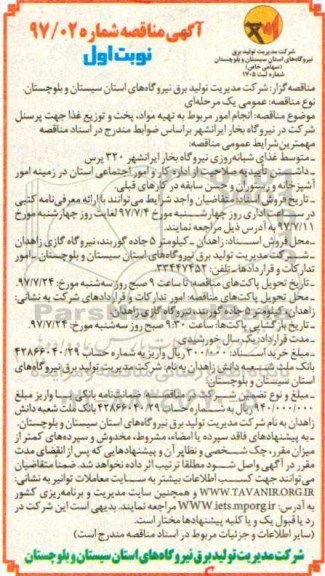 آگهی مناقصه شماره ۹۷/۰۲
نوبت اول
شرکت مدیریت تولید برق
نیروگاه‌های استان سیستان و بلوچستان
(سهامی خاص)
شماره ثبت ۱۷۰۵
مناقصه گزار: شرکت مدیریت تولید برق نیروگاه‌های استان سیستان و بلوچستان
نوع مناقصه: عمومی یک مرحله‌ای
موضوع مناقصه: انجام امور مربوط به تهیه مواد، پخت و توزیع غذا جهت پرسنل
شرکت در نیروگاه بخار ایرانشهر براساس ضوابط مندرج در اسناد مناقصه
مهمترین شرایط عمومی مناقصه:
ـ متوسط غذای شبانه‌روزی نیروگاه بخار ایرانشهر ۳۲۰ پرس
ـ داشتن تاییدیه صلاحیت از اداره کار و امور اجتماعی استان در زمینه امور
آشپزخانه و رستوران و حسن سابقه در کارهای قبلی.
ـ تاریخ فروش اسناد: متقاضیان واجد شرایط می‌توانند با ارائه معرفی‌نامه کتبی
در ساعت اداری روز چهارشنبه مورخ ۹۷/۷/۴ لغایت روز چهارشنبه مورخ
۹۷/۷/۱۱ به آدرس ذیل مراجعه نمایند.
ـ محل فروش اسناد: زاهدان ـ کیلومتر ۵ جاده گوربند، نیروگاه گازی زاهدان
ـ شرکت مدیریت تولید برق نیروگاه‌های استان سیستان و بلوچستان ـ امور
تدارکات و قراردادها ـ تلفن: ۳۳۴۴۷۴۵۲
ـ تاریخ تحویل پاکت‌های مناقصه: تا ساعت ۹ صبح روز سه‌شنبه مورخ: ۹۷/۷/۲۴
ـ محل تحویل پاکت‌های مناقصه: امور تدارکات و قراردادهای شرکت به نشانی:
زاهدان، کیلومتر ۵ جاده گوربند، نیروگاه گازی زاهدان
ـ تاریخ بازگشایی پاکت‌ها: ساعت ۹:۳۰ صبح روز سه‌شنبه مورخ: ۹۷/۷/۲۴.
ـ مدت قرارداد: یک سال خورشیدی.
ـ مبلغ خرید اسناد: ۳۰۰/۰۰۰ ریال واریز به شماره حساب ۴۲۸۶۶۰۴۰/۲۹
بانک ملت شعبه دانش زاهدان به نام: شرکت مدیریت تولید برق نیروگاه‌های
استان سیستان و بلوچستان
ـ مبلغ و نوع تضمین شرکت در مناقصه: ضمانتنامه بانکی یا واریز مبلغ
۹۴۰/۰۰۰/۰۰۰ ریال به شماره حساب ۴۲۸۶۶۰۴۰/۲۹ بانک ملت شعبه دانش
زاهدان به نام شرکت مدیریت تولید برق نیروگاه‌های استان سیستان و بلوچستان.
ـ به پیشنهادهای فاقد سپرده یا امضاء، مشروط، مخدوش و سپرده‌های کمتر از
میزان مقرر، چک شخصی و نظایر آن و پیشنهادهایی که پس از انقضای مدت
مقرر در آگهی واصل شود مطلقا ترتیب اثر داده نخواهد شد. ضمنا متقاضیان
می‌توانند جهت کسب اطلاعات بیشتر به سایت معاملات توانیر به نشانی:
WWW.TAVANIR.ORG.IR و همچنین سایت مدیریت و برنامه‌ریزی کشور
به آدرس: WWW.iets.mporg.ir مراجعه نمایند. بدیهی است این شرکت در
رد یا قبول یک و یا کلیه پیشنهادها مختار است.
(سایر اطلاعات و جزئیات مربوط در اسناد مناقصه مندرج است)
شرکت مدیریت تولید برق نیروگاه‌های استان سیستان و بلوچستان